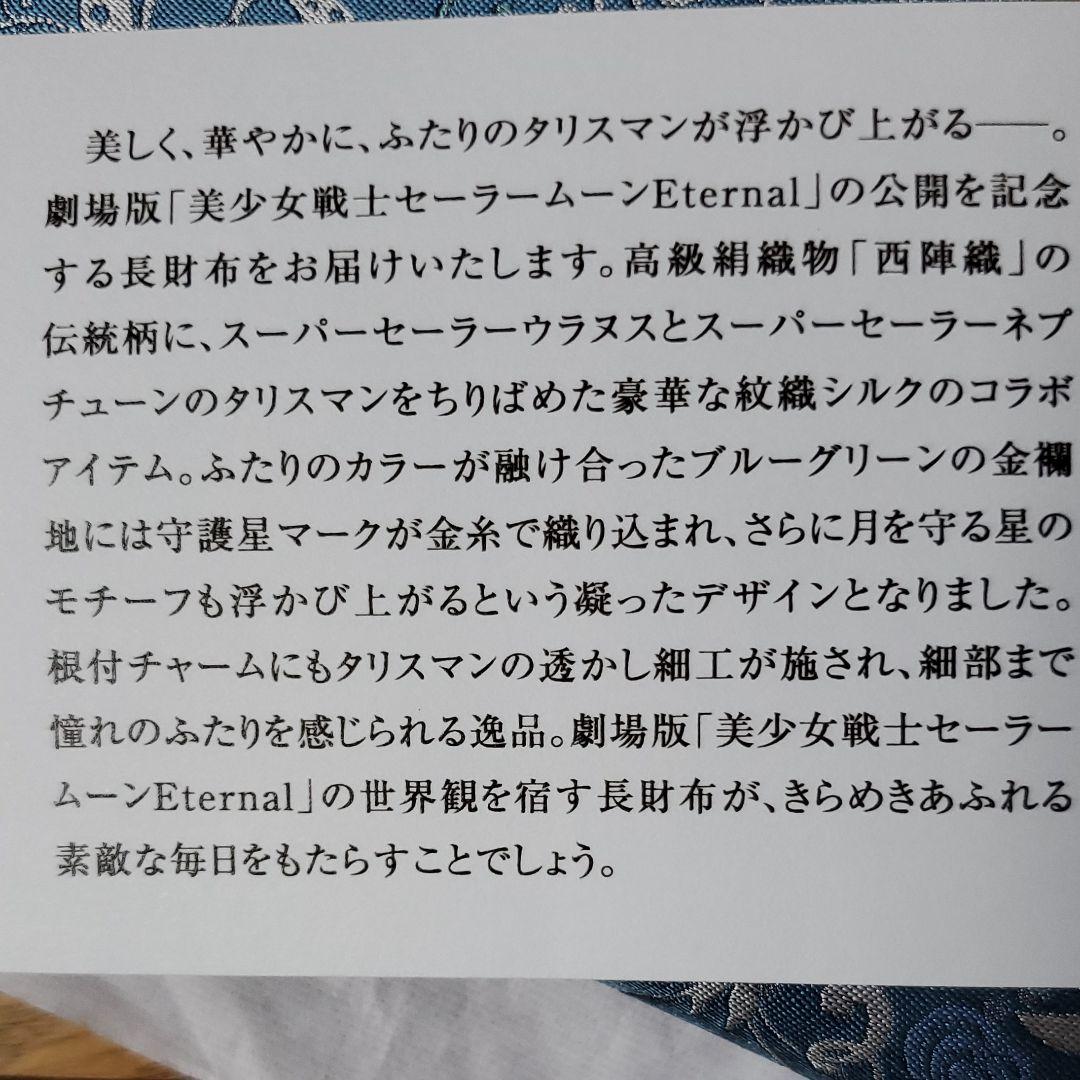 美しく、華やかに、ふたりのタリスマンが浮かび上がる――。
劇場版「美少女戦士セーラームーンEternal」の公開を記念
する長財布をお届けいたします。高級絹織物「西陣織」の
伝統柄に、スーパーセーラーウラヌスとスーパーセーラーネプ
チューンのタリスマンをちりばめた豪華な紋織シルクのコラボ
アイテム。ふたりのカラーが融け合ったブルーグリーンの金襴
地には守護星マークが金糸で織り込まれ、さらに月を守る星の
モチーフも浮かび上がるという凝ったデザインとなりました。
根付チャームにもタリスマンの透かし細工が施され、細部まで
憧れのふたりを感じられる逸品。劇場版「美少女戦士セーラー
ムーンEternal」の世界観を宿す長財布が、きらめきあふれる
素敵な毎日をもたらすことでしょう。